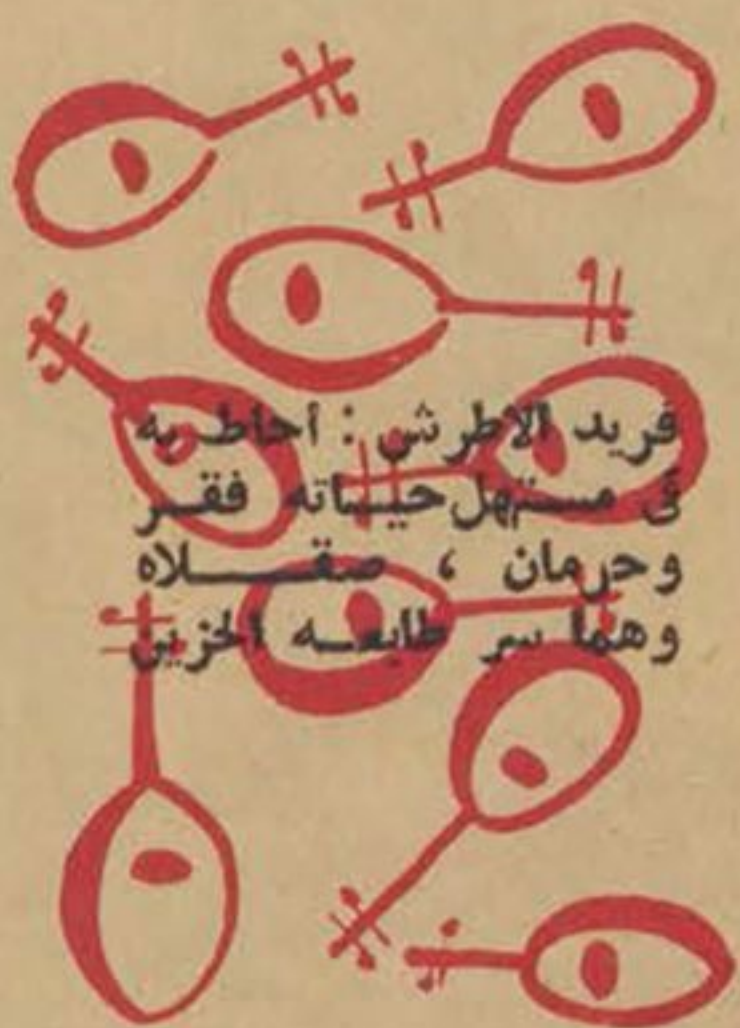 فريد الاطرش : أحاط به
فى مستهل حياته فقر
وحرمان ، صقلاه
وهما سر طابعه الحزين